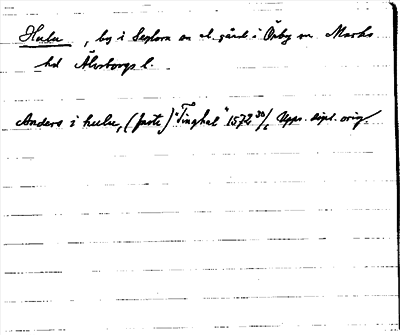 Hulu, by i Seglora sn el. gård i Örby sn Marks
hd Älvsborgs l.
Anders i hulu, (faste) "Tinghal" 1572 30/6 Upps. dipl. orig.